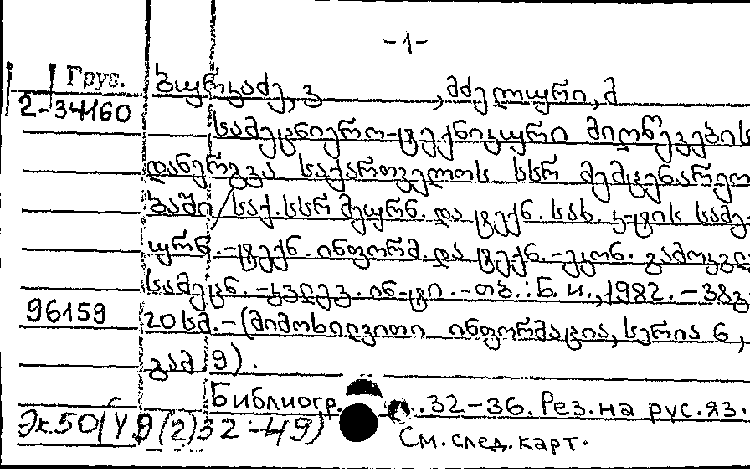 -1-
Груз.
2-34160
ბურკაძე, ვ , მძელური, მ
სამეცნიერო-ტექნიკური მიღწევების
დანერგვა საქართველოს სსრ მემცენარეო
ბაში / საქ. სსრ მეურნ. და ტექნ. სახ. კ-ტის სამე
ურნ.-ტექნ. ინფორმ. და ტექნ.-ეკონ. გამოკვლ
სამეცნ.-კვლევ. ინ-ტი.-თბ.: Б. и., 1982.-38გ
96159
20 სმ.-(მიმოხილვითი ინფორმაცია, სერია 6,
გამ 9).
Библиогр. с.32-36. Рез. на рус. яз.
Эк.50(У9(2)32-49)
См. след. карт.